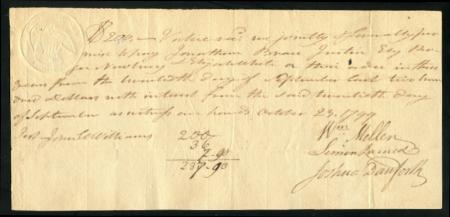 Value rec'd we jointly & severally pro
mise to pay Jonathan
Newbury & Elizabeth White or their order in three
Years from the twentieth day of September last two hun
dred dollars with interest from the said twentieth day
of September as witness our hands October 23. 1799
Test John Williams
200
36
237-93
Wm Mellen
Simon Larned
Joshua Danforth